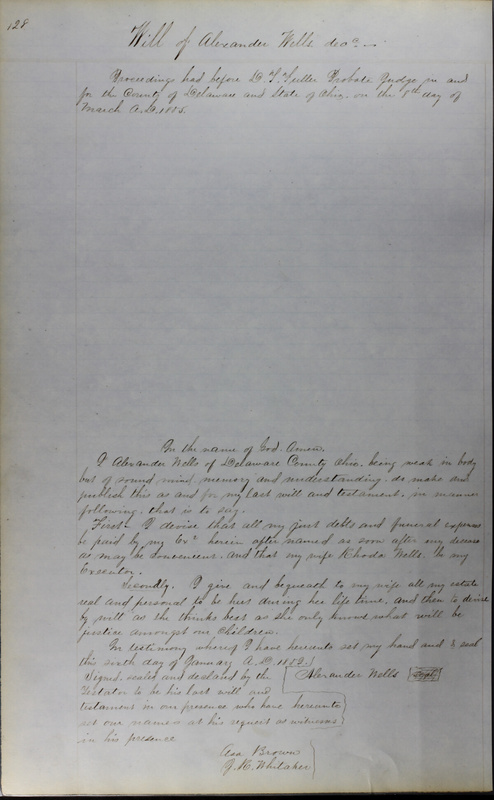 128
Will of Alexander Wells decd.
Proceedings had before D. T. Fuller Probate Judge in and
for the County of Delaware and State of Ohio. on the 8th day of
March A.D. 1855.
In the name of God. Amen.
I Alexander Wells of Delaware County Ohio. being weak in body
but of sound mind memory and understanding. do make and
publish this as and for my last will and testament, in manner
following. that is to say.
First I devise that all my just debts and funeral expenses
be paid by my Exr herein after named as soon after my decease
as may be convenient. and that my wife Rhoda Wells be my
Executor.
Secondly. I give and bequeath to my wife all my estate
real and personal to be hers during her life time. and then to devise
by will as she thinks best as she only knows what will be
justice amongst our children.
In testimony whereof I have hereunto set my hand and seal
this sixth day of January A.D. 1852.
Signed. sealed and declared by the
Alexander Wells. Seal
Testator to be his last will and
testament in our presence who have hereunto
set our names at his request as witnesses
in his presence
Asa Brown
Whitaker